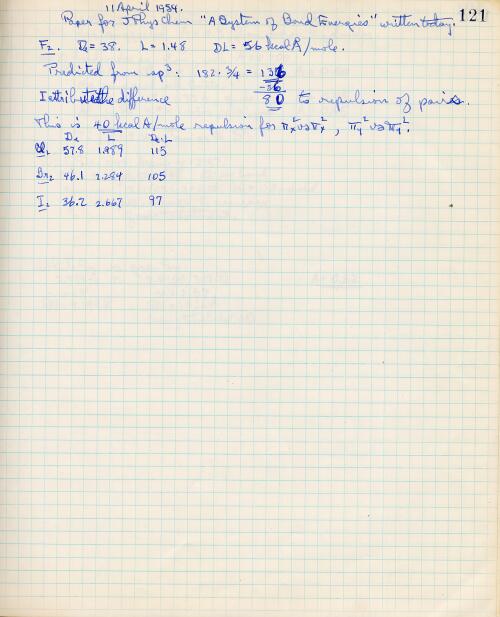 121
11 April 1954.
Paper for J Phys Chem "A System of Bond Energies" written today.
F₂. D₀ = 38. L = 1.48 DL = 56 kcal Å/mole.
Predicted from sp³: 182. 3/4 = 136
-56
I attribute the difference 80 to repulsion of pairs.
This is 40 kcal Å/mole repulsion for πₓ² vs πₓ², πᵧ² vs πᵧ².
D₀ L D₀·L
Cl₂ 57.8 1.989 115
Br₂ 46.1 2.284 105
I₂ 36.2 2.667 97